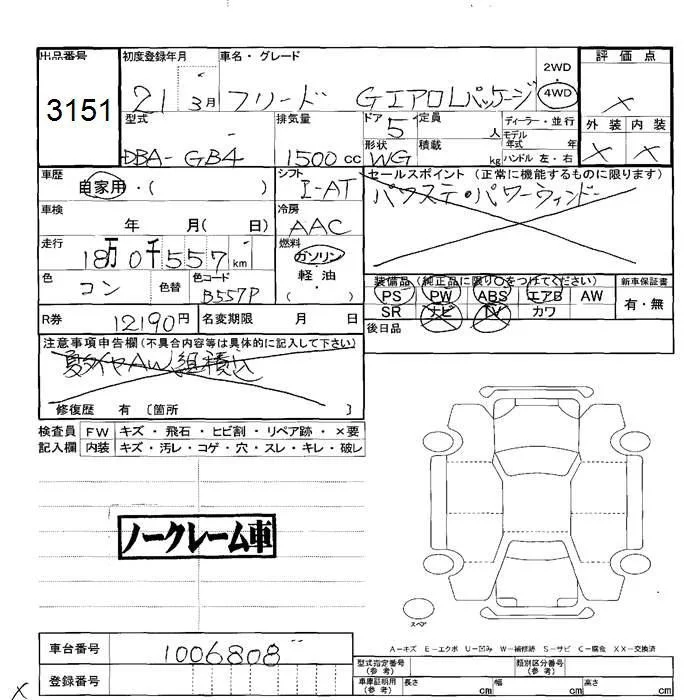 出品番号 3151
初度登録年月 21 3月
車名・グレード フリード GエアロLパッケージ
2WD
4WD
評価点 ×
外装 内装
× ×
型式 DBA-GB4
排気量 1500cc
ドア 5
定員 人
形状 WG
積載 kg
ディーラー・並行
モデル年式 年
ハンドル 左・右
車歴 自家用・( )
シフト I-AT
セールスポイント(正常に機能するものに限ります)
パワステ・パワーウィンドー
車検 年 月( 日)
冷房 AAC
走行 18万0千557km
燃料 ガソリン・軽油・( )
色 コン
色替
色コード B557P
装備品(純正品に限り○をつけてください)
PS PW ABS エアB AW
SR ナビ TV カワ
新車保証書 有・無
後日品
R券 12190円
名変期限 月 日
注意事項申告欄(不具合内容等は具体的に記入して下さい)
夏タイヤAW組積込
修復歴 有〔箇所 〕
検査員記入欄
FW キズ・飛石・ヒビ割・リペア跡・×要
内装 キズ・汚レ・コゲ・穴・スレ・キレ・破レ
ノークレーム車
スペア
A-キズ E-エクボ U-凹み W-補修跡 S-サビ C-腐食 XX-交換済
車台番号 1006808
登録番号
型式指定番号(参考)
類別区分番号(参考)
車庫証明用(参考) 長さ cm 幅 cm 高さ cm
×